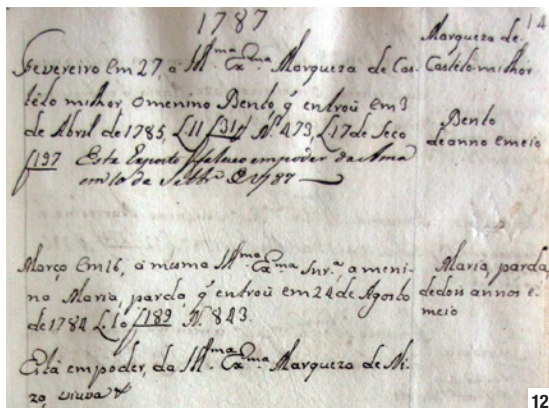 1787
14
Fevereiro em 27, a Ill.ma Ex.ma Marqueza de Cas-
tello milhor, o menino Bento, q' entroû em 3
de Abril de 1785, L. 11 f 314 N.º 473, L. 17 de Seco
f 197 Este Exposto faleceo em poder da Ama
em 10 de Settbr.º de 1787
Marqueza de
Castello milhor
Bento
de anno e meio
Março em 16, a mesma Ill.ma Ex.ma Snr.ª, a meni-
na Maria, parda, q' entroû em 24 de Agosto
de 1784 L. 10 f 189 N.º 843.
Está em poder, da Ill.ma Ex.ma Marqueza de Ni-
za, viuva
Maria, parda
de dois annos e
meio
12